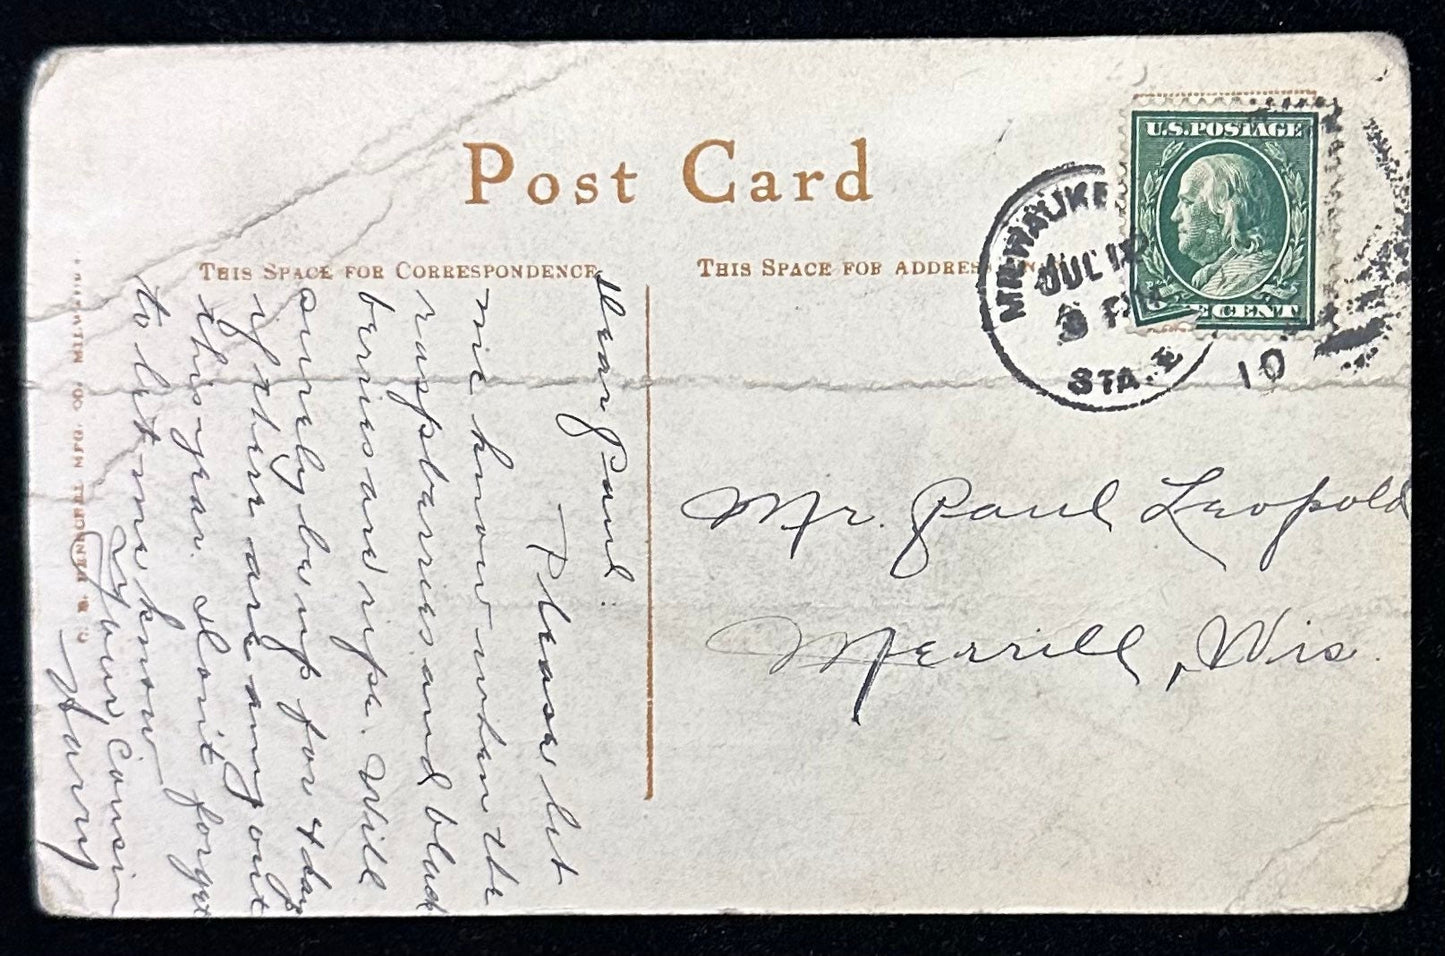 Post Card
THIS SPACE FOR CORRESPONDENCE
THIS SPACE FOR ADDRESS ON
U.S. POSTAGE
ONE CENT
MILWAUKEE
JUL
PM
STA. E
10
Mr. Paul Leopold
Merrill, Wis.
Dear Paul:
Please let
me know when the
raspberries and black
berries are ripe. Will
surely be up for 4 days
if there are any out
this year. Don't forget
to let me know
Your Cousin
Harry
MFG. CO. MILWAUKEE